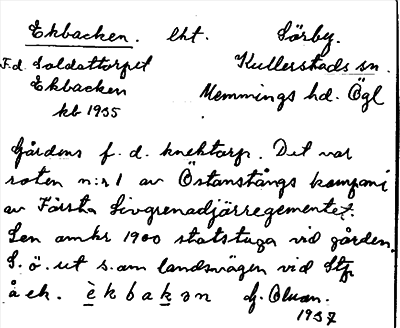 Ekbacken. lht. Sörby.
F.d. Soldattorpet Kullerstads sn.
Ekbacken Memmings hd. Ögl
kb 1935
Gårdens f.d. knektorp. Det var
roten n:r 1 av Östanstångs kompani
av Första Livgrenadjärregementet.
Sen omkr 1900 statstuga vid gården.
S.ö. ut s.om landsvägen vid Stp
å ek. èkbakən G.
1937